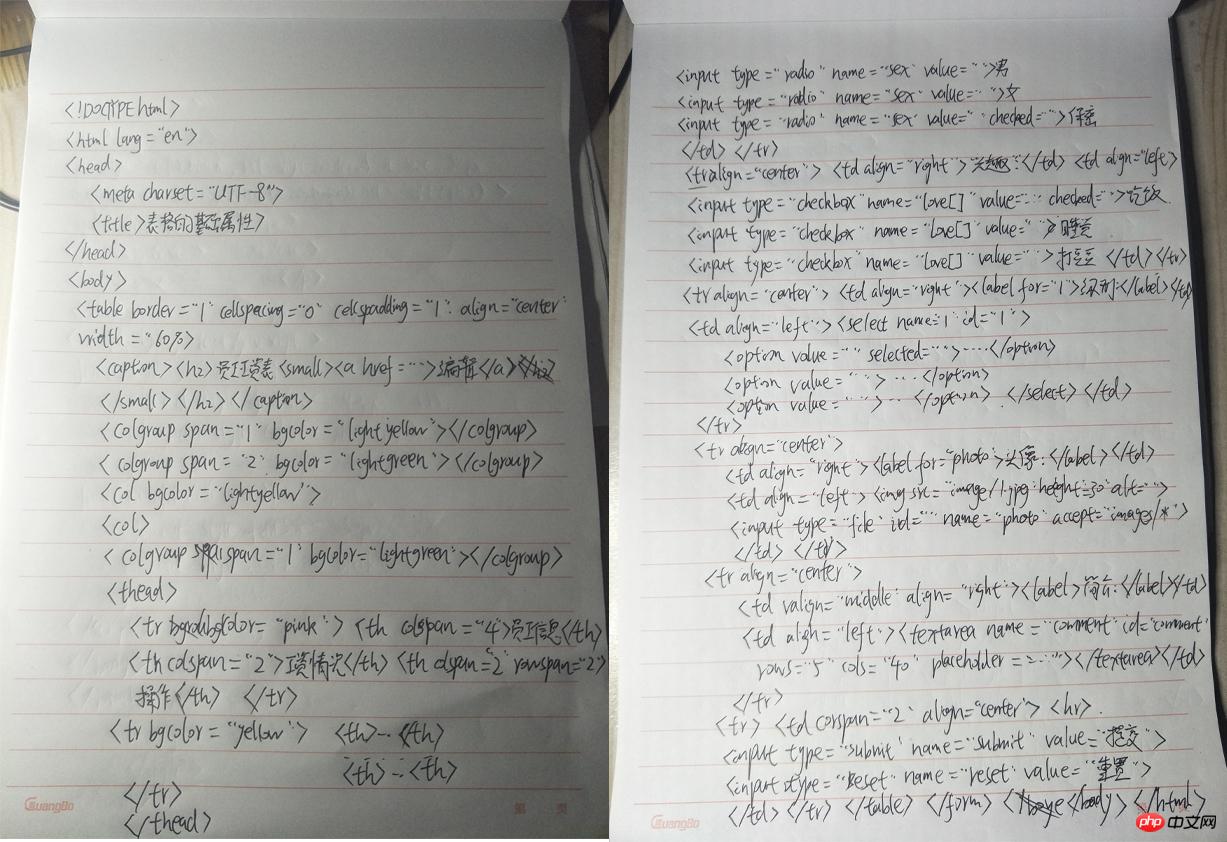 <!DOCTYPE html>
<html lang="en">
<head>
<meta charset="UTF-8">
<title>表格的基本属性>
</head>
<body>
<table border="1" cellspacing="0" cellspadding="1" align="center"
width="60%>
<caption><h2>员工工资表<small><a href="">编辑</a>
</small></h2></caption>
<colgroup span="1" bgcolor="lightyellow"></colgroup>
<colgroup span="2" bgcolor="lightgreen"></colgroup>
<col bgcolor="lightyellow">
<col>
<colgroup span="1" bgcolor="lightgreen"></colgroup>
<thead>
<tr bgcolor="pink"> <th colspan="4">员工信息</th>
<th colspan="2">工资情况</th> <th colspan="2" rowspan="2">
操作</th> </tr>
<tr bgcolor="yellow"> <th>…</th>
<th>…<th>
</tr>
</thead>
GuangBo 第 页
<input type="radio" name="sex" value="">男
<input type="radio" name="sex" value="">女
<input type="radio" name="sex" value="" checked="">保密
</td> </tr>
<tr align="center"> <td align="right">兴趣:</td> <td align="left">
<input type="checkbox" name="love[]" value="" checked="">吃饭
<input type="checkbox" name="love[]" value="">睡觉
<input type="checkbox" name="love[]" value="">打豆豆</td></tr>
<tr align="center"> <td align="right"><label for="1">级别:</label></td>
<td align="left"><select name="1" id="1">
<option value="" selected="">……</option>
<option value="">…</option>
<option value="">…</option> </select> </td>
</tr>
<tr align="center">
<td align="right"><label for="photo">头像:</label></td>
<td align="left"><img src="image/1.jpg" height=50 alt="">
<input type="file" id="" name="photo" accept="images/*">
</td> </tr>
<tr align="center">
<td valign="middle" align="right"><label>简介:</label></td>
<td align="left"><textarea name="comment" id="comment"
rows="5" cols="40" placeholder=""></textarea></td>
</tr>
<tr> <td corspan="2" align="center"> <hr>
<input type="submit" name="submit" value="提交">
<input type="reset" name="reset" value="重置">
</td> </tr> </table> </form> </body> </html>
GuangBo
php 中文网